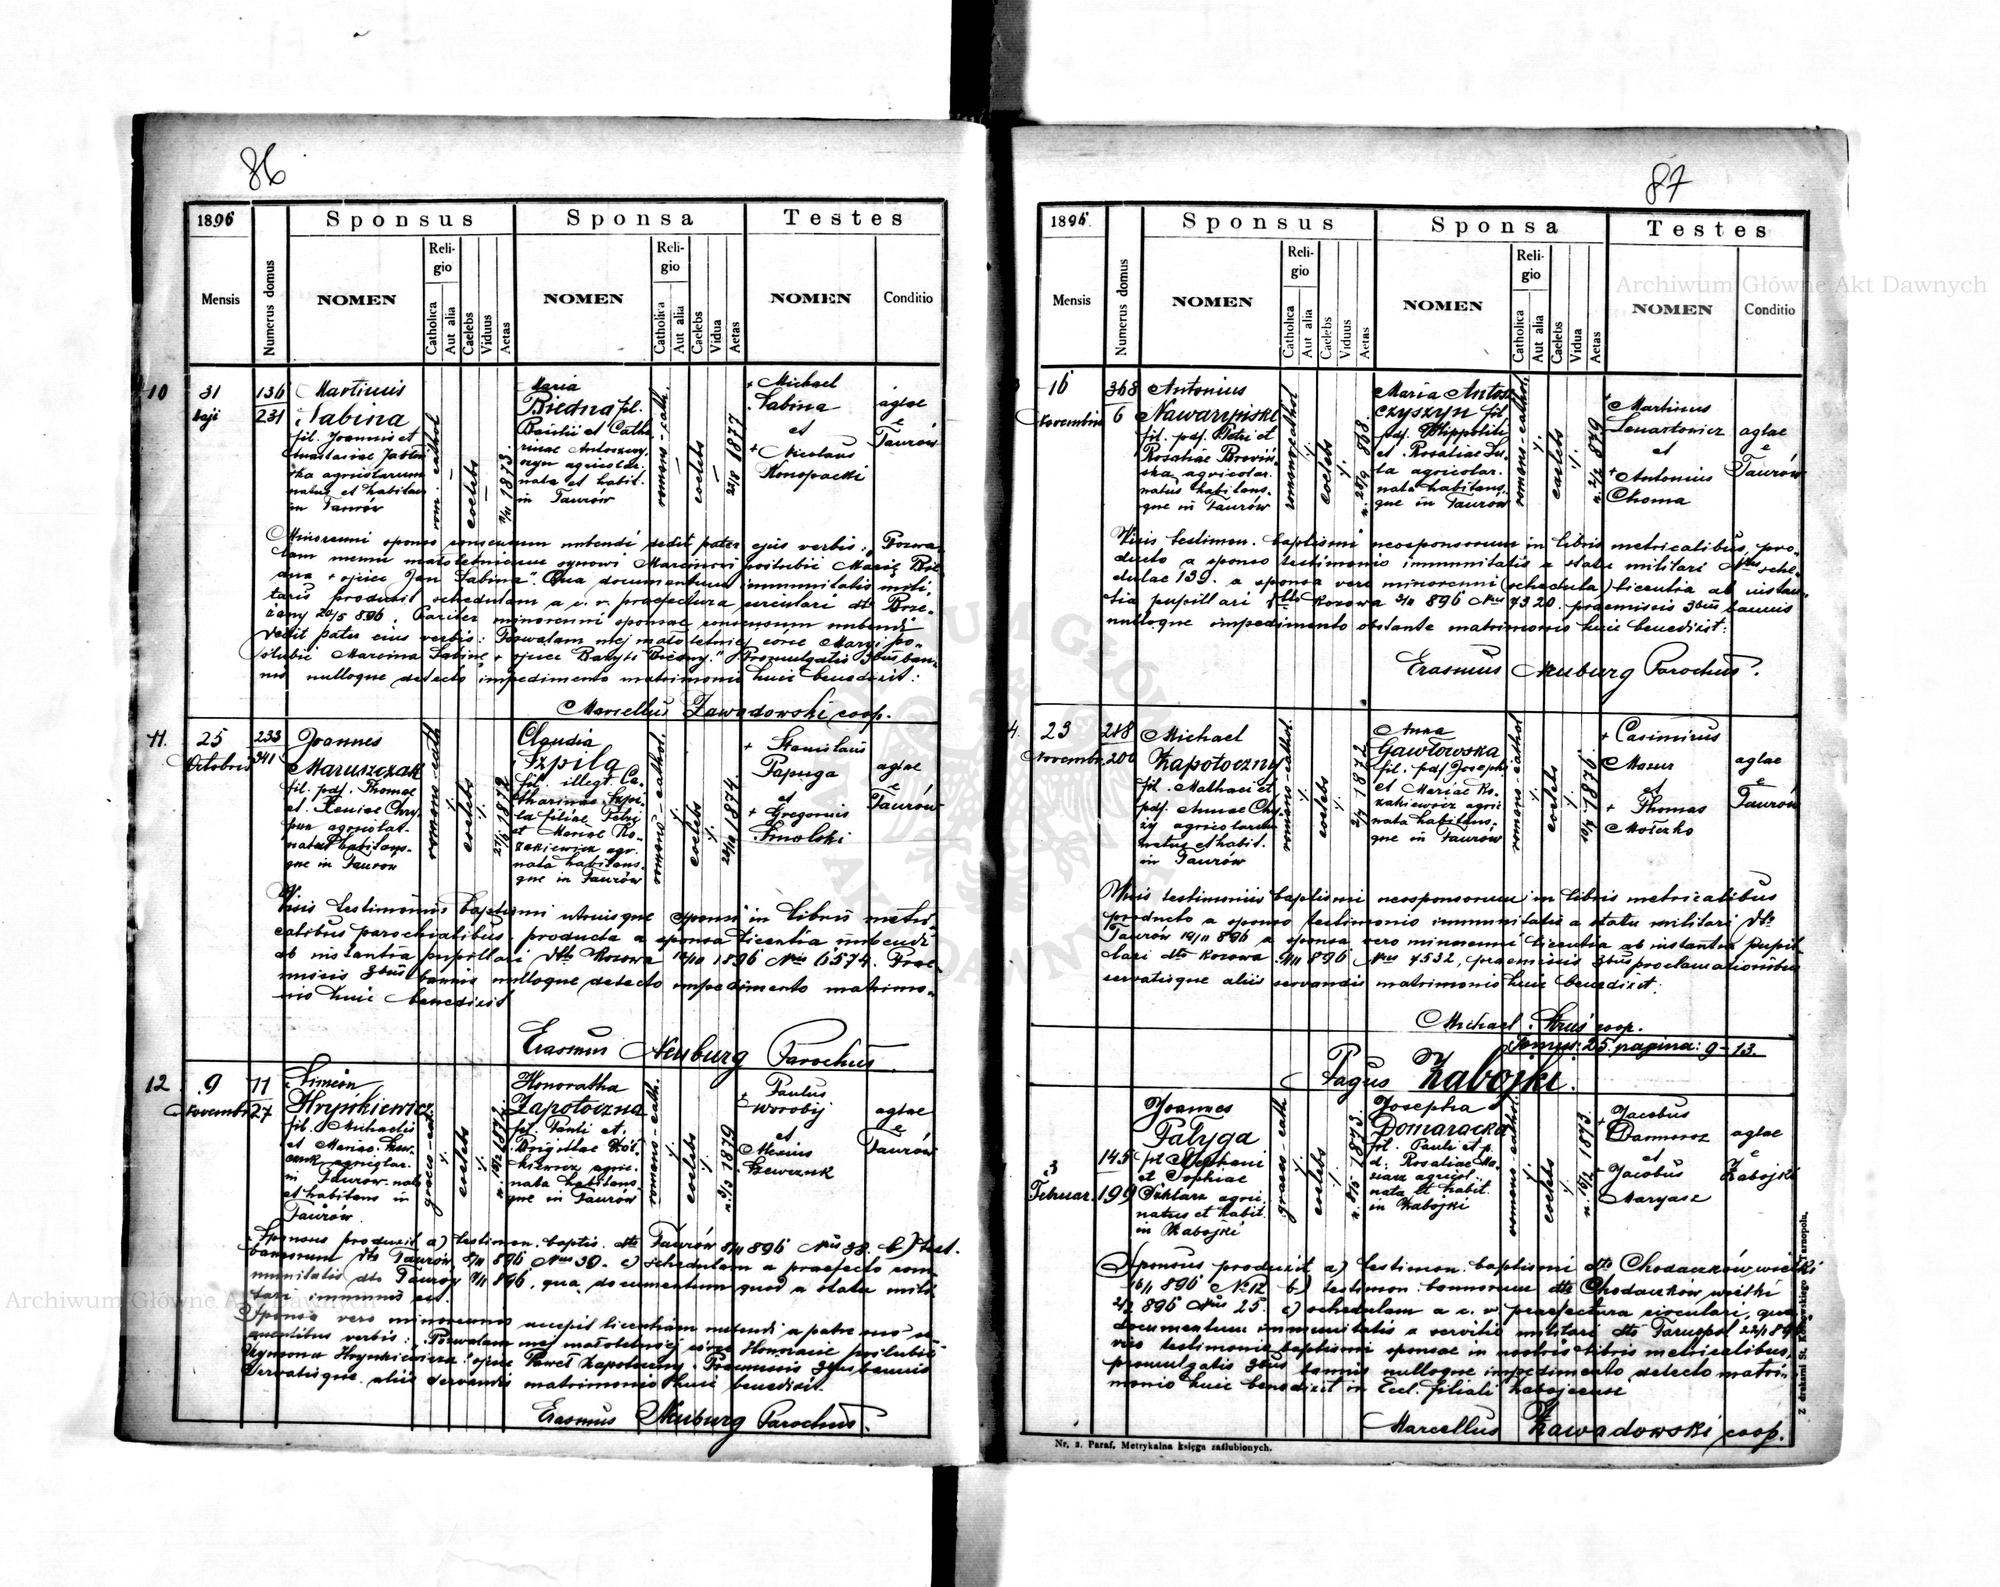 86
1896
Sponsus
Sponsa
Testes
Mensis
Numerus domus
NOMEN
Religio
Catholica
Aut alia
Caelebs
Viduus
Aetas
NOMEN
Religio
Catholica
Aut alia
Caelebs
Vidua
Aetas
NOMEN
Conditio
10
31
Maji
136
231
Martinus
Sabina
fil. Joannis et
natus et habitans
in Taurów
rom. cathol
coelebs
1873
Maria
Biedna fil.
Basilii et Catha
rinae Antoszczy
szyn agricolar.
nata et habit.
in Taurów
romano-cath.
coelebs
25/8 1877
+ Michael
Sabina
et
+ Nicolaus
Konopacki
aglae
e
Taurów
Minorenni sponso consensum nubendi dedit pater ejus verbis: "Pozwa-
lam memu małoletniemu synowi Marcinowi poślubić Maryę Bie-
dną + ojciec Jan Sabina". Qua documentum immunitatis mili-
taris produxit schedulam a c. r. praefectura circulari dto Brze-
żany 20/5 896. Pariter minorenni sponsae consensum nubendi
dedit pater eius verbis: Pozwalam mej małoletniej córce Maryi po-
ślubić Marcina Sabinę + ojciec Bazyli Biedny." Promulgatis 3bus ban-
nis nulloque detecto impedimento matrimonii huic benedixit:
Marcellus Zawadowski coop.
11.
25
Octobris
233
341
Joannes
Maruszczak
fil. pdf. Thomae
et Xeniae Chry
agricolar.
natus habitans-
que in Taurów
romano-cath
coelebs
27/1 1872
Claudia
Szpila
fil. illegt. Ca-
tharinae Szpi-
la filiae Petri
et Mariae Ko-
zakiewicz agr.
nata habitans
que in Taurów
romano-cathol.
coelebs
1874
+ Stanislaus
Papuga
et
+ Gregorius
Smolski
aglae
e
Taurów
Visis testimoniis baptismi utriusque sponsi in libris metri-
calibus parochialibus, producta a sponsa licentia nubendi
ab instantia pupillari dto Kozowa 1896 Nris 6574. Prae-
missis 3bus bannis nulloque detecto impedimento matrimo-
nio huic benedixit
Erasmus Neuburg Parochus
12
9
Novembr.
11
27
Simeon
Hryńkiewicz
fil. Michaelis
et Mariae Szew-
czuk agricolar.
in Taurów nat.
et habitans in
Taurów
graeco-cath.
coelebs
Honoratha
Zapotoczna
fil. Pauli et
Brigittae
agric.
nata habitans
que in Taurów
romano-cath.
coelebs
1879
+ Paulus
Worobij
et
Alexius
Szewczuk
aglae
e
Taurów
Sponsus produxit a) testimon. baptis. dto Taurów 8/11 896 Nris 38. b) test.
bannorum dto Taurów 8/11 896 Nris 39. c) schedulam a praefecto com-
munitatis dto Taurów 896, qua documentum quod a statu mili-
tari immunis est.
Sponsa vero minorennis accepit licentiam nubendi a patre suo se-
quentibus verbis: "Pozwalam mej małoletniej córce Honoracie poślubić
Szymona Hryńkiewicza." ojciec Paweł Zapotoczny. Praemissis 3bus bannis
servatisque aliis servandis matrimonio huic benedixit.
Erasmus Neuburg Parochus.
87
1896
Sponsus
Sponsa
Testes
Mensis
Numerus domus
NOMEN
Religio
Catholica
Aut alia
Caelebs
Viduus
Aetas
NOMEN
Religio
Catholica
Aut alia
Caelebs
Vidua
Aetas
NOMEN
Conditio
16
Novembris
368
6
Antonius
Nawaryński
fil. pdf. Petri et
Rosaliae Browiń-
ska agricolar.
natus habitans-
que in Taurów
romano-cathol
coelebs
n. 29/9 868.
Maria Antosz
czyszyn fil.
pdf. Hippoliti
et Rosaliae
agricolar.
nata habitans-
que in Taurów
romano-cathol.
coelebs
879
Martinus
Lenartowicz
et
+ Antonius
Choma
aglae
e
Taurów
Visis testimon. baptismi neosponsorum in libris metricalibus, pro-
ducto a sponso testimonio immunitatis a statu militari Nris sche-
dulae 139. a sponsa vero minorenni (schedula) licentia ab instan-
tia pupillari dto Kozowa 896 Nris 7320. praemissis 3bus bannis
nulloque impedimento obstante matrimonio huic benedixit:
Erasmus Neuburg Parochus.
4.
23
Novembr.
288
200
Michael
Zapotoczny
fil. Mathaei et
pdf. Annae
agricolarum
natus et habit.
in Taurów
romano-cathol.
coelebs
1872
Anna
Gawłowska
fil. pdf Josephi
et Mariae Ko-
zakiewicz agric
nata habitans-
que in Taurów
romano-cathol
coelebs
1876
+ Casimirus
Mazur
et
+ Thomas
Moczko
aglae
e
Taurów
Visis testimoniis baptismi neosponsorum in libris metricalibus
producto a sponso testimonio immunitatis a statu militari dto
Taurów 896 a sponsa vero minorenni licentia ab instantia pupil-
lari dto Kozowa 896 Nris 7532, praemissis 3bus proclamationibus
servatisque aliis servandis matrimonio huic benedixit:
Michael coop.
Tomus: 25. pagina: 9-13.
Pagus Zabojki.
3
Februar.
145
199
Joannes
Pałyga
fil Stephani
et Sophiae
agric.
natus et habit.
in Zabojki
graeco-cath
coelebs
1873.
Josepha
Domaracka
fil. Pauli et p.
d. Rosaliae Ma-
agricol.
nata et habit.
in Zabojki
romano-cathol.
coelebs
1873
+ Jacobus
Dammoroz
et
+ Jacobus
Maryasz
aglae
e
Zabojki
Sponsus produxit a) testimon. baptismi dto Chodaczków wielki
16/1 896 Nr 12 b) testimon. bannorum dto Chodaczków wielki
2/2 896 Nris 25. c) schedulam a c. r. praefectura circulari, qua
documentum immunitatis a servitio militari dto Tarnopol 22/1 896
viso testimonio baptismi sponsae in nostris libris metricalibus,
promulgatis 3bus bannis nulloque impedimento detecto matri-
monio huic benedixit in Eccl. filiali Zabojcense
Marcellus Zawadowski coop.
Nr. 2. Paraf. Metrykalna księga zaślubionych.
Z drukarni St. Kossowskiego w Tarnopolu.
Archiwum Główne Akt Dawnych
Archiwum Główne Akt Dawnych